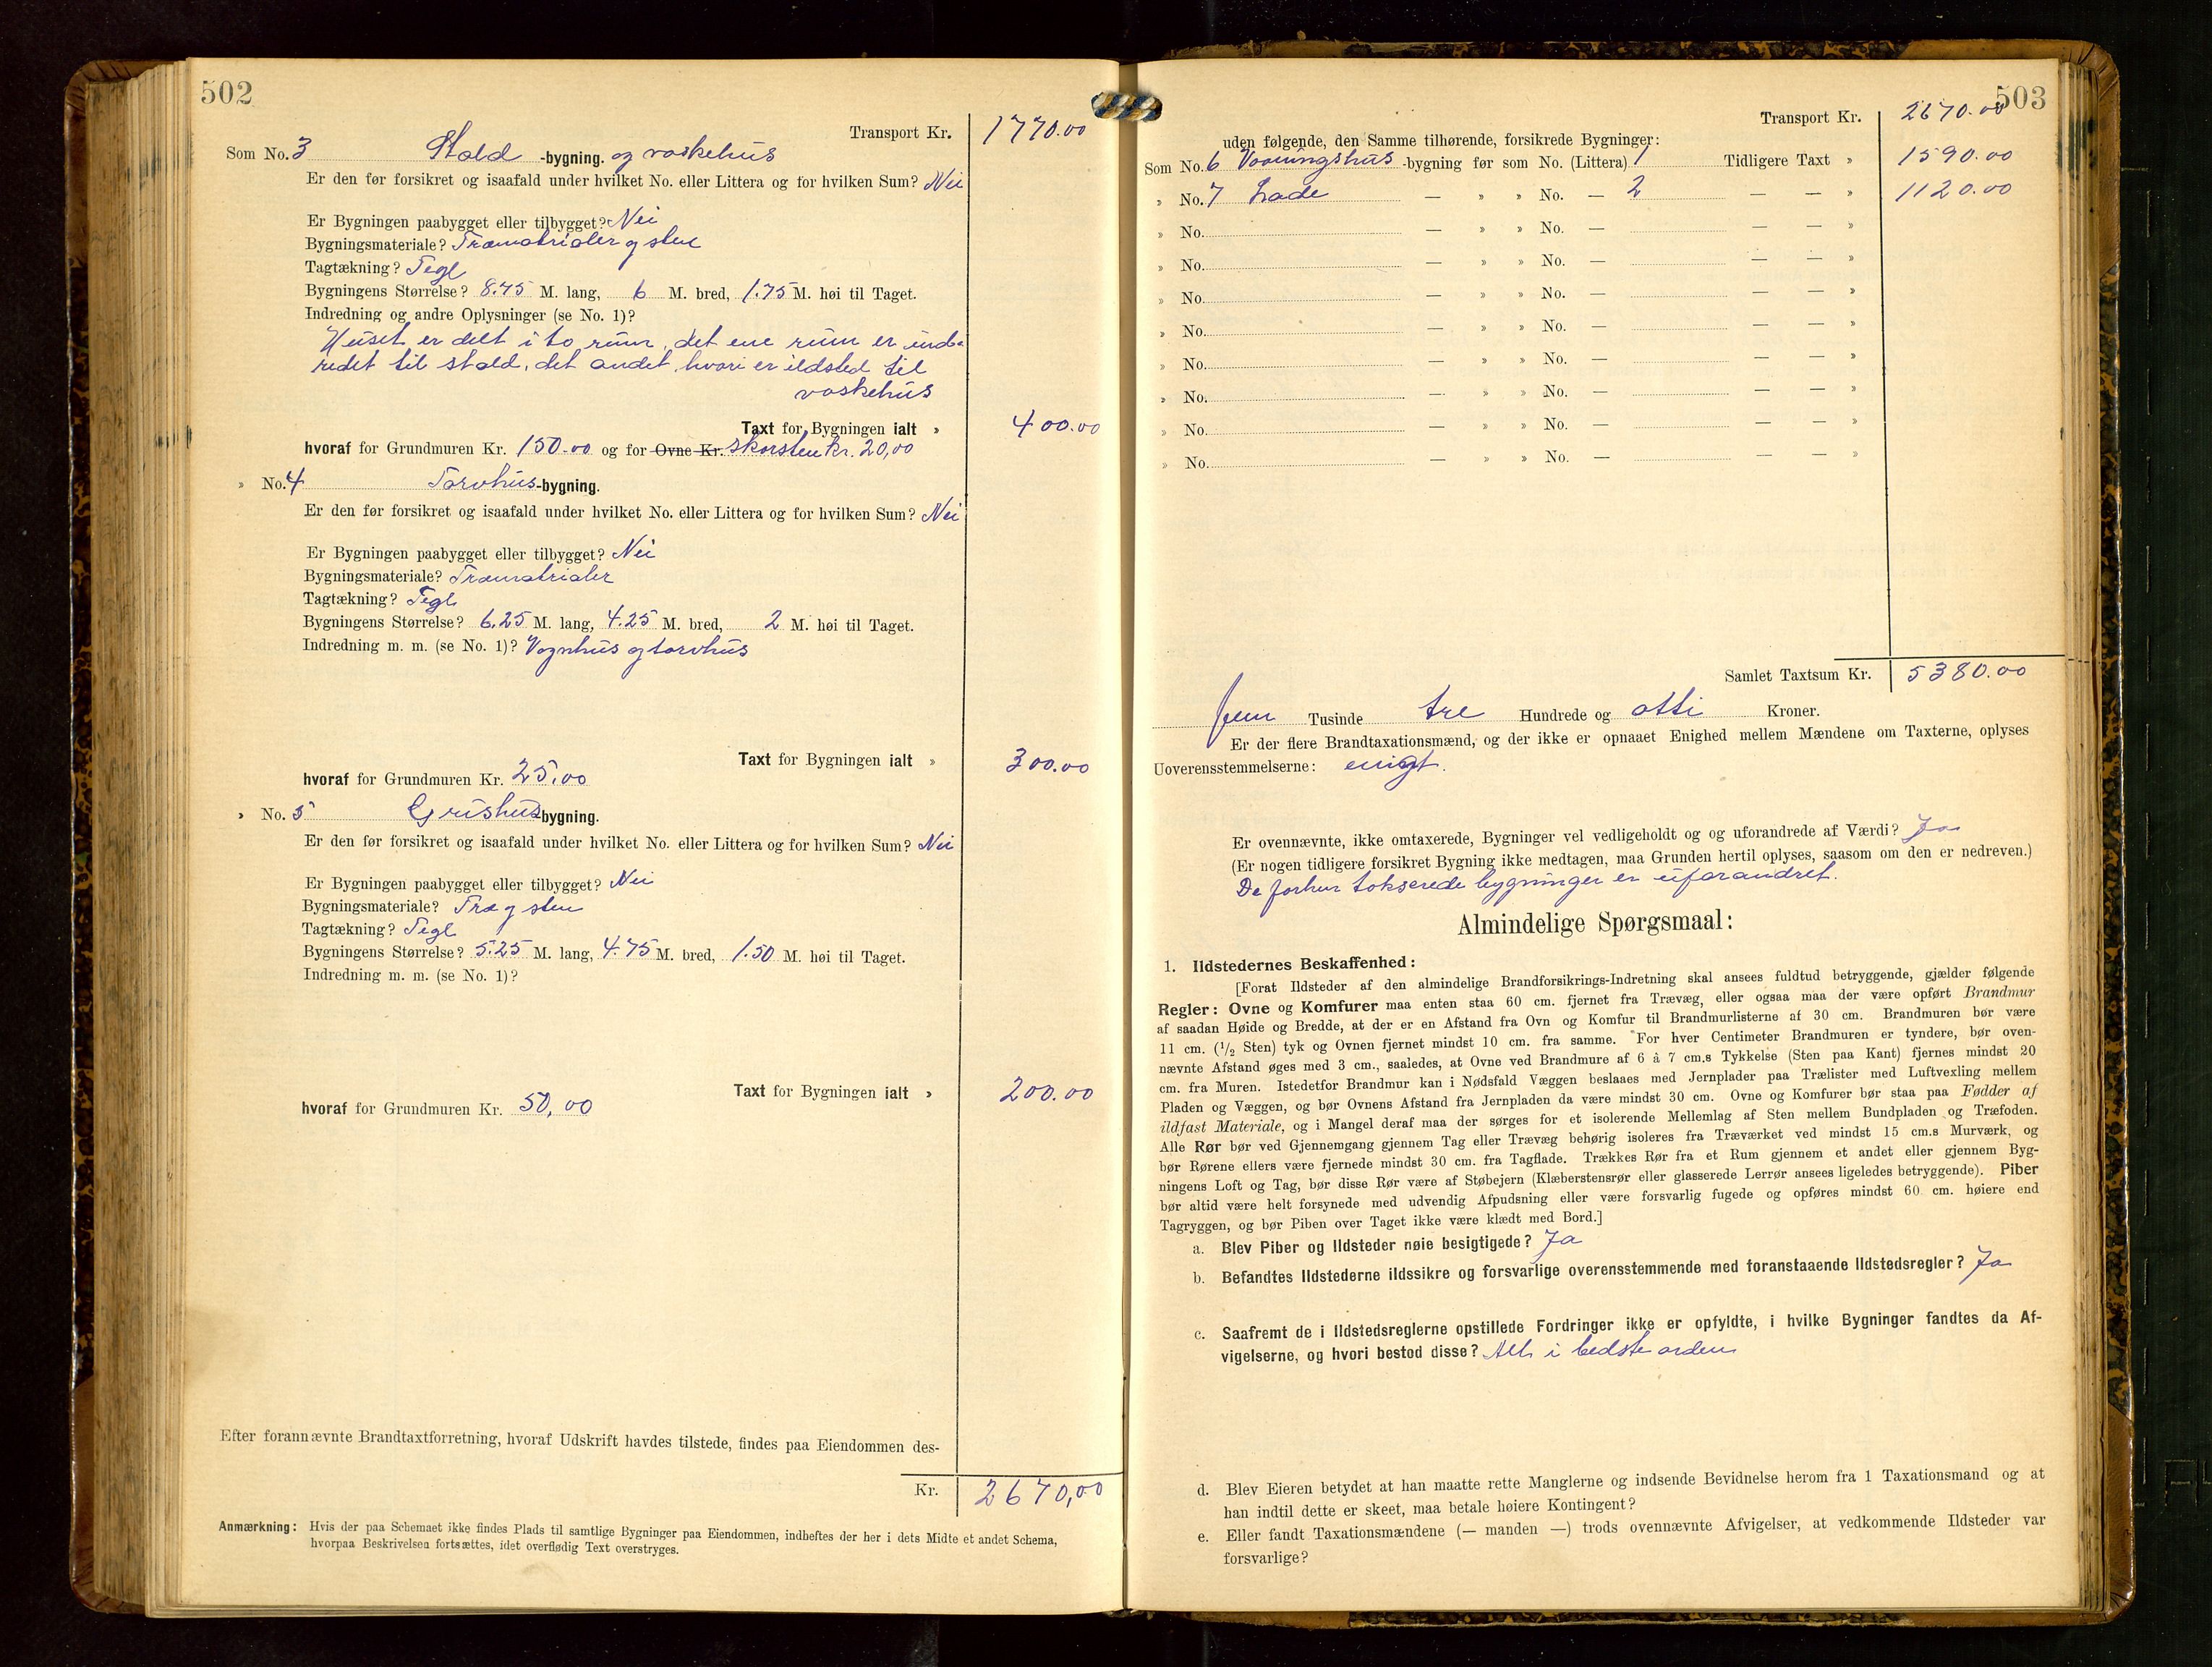 502
Transport Kr. 1770.00
Som No. 3 Stald -bygning. og vaskehus
Er den før forsikret og isaafald under hvilket No. eller Littera og for hvilken Sum? Nei
Er Bygningen paabygget eller tilbygget? Nei
Bygningsmateriale? Træmatrialer og sten
Tagtækning? Tegl
Bygningens Størrelse? 8.75 M. lang, 6 M. bred, 1.75 M. høi til Taget.
Indredning og andre Oplysninger (se No. 1)?
Huset er delt i to rum, det ene rum er ind-
redet til stald, det andet hvori er ildsted til
vaskehus
Taxt for Bygningen ialt » 400.00
hvoraf for Grundmuren Kr. 150.00 og for Ovne Kr. skorsten kr. 20,00
» No. 4 Torvhus-bygning.
Er den før forsikret og isaafald under hvilket No. eller Littera og for hvilken Sum? Nei
Er Bygningen paabygget eller tilbygget? Nei
Bygningsmateriale? Træmatrialer
Tagtækning? Tegl
Bygningens Størrelse? 6.25 M. lang, 4.25 M. bred, 2 M. høi til Taget.
Indredning m. m. (se No. 1)? Vognhus og torvhus
Taxt for Bygningen ialt » 300.00
hvoraf for Grundmuren Kr. 25.00
» No. 5 Grishus bygning.
Er den før forsikret og isaafald under hvilket No. eller Littera og for hvilken Sum? Nei
Er Bygningen paabygget eller tilbygget? Nei
Bygningsmateriale? Træ og sten
Tagtækning? Tegl
Bygningens Størrelse? 5.25 M. lang, 4.75 M. bred, 1.50 M. høi til Taget.
Indredning m. m. (se No. 1)?
Taxt for Bygningen ialt » 200.00
hvoraf for Grundmuren Kr. 50,00
Efter forannævnte Brandtaxtforretning, hvoraf Udskrift havdes tilstede, findes paa Eiendommen des-
Kr. 2670,00
Anmærkning: Hvis der paa Schemaet ikke findes Plads til samtlige Bygninger paa Eiendommen, indheftes der her i dets Midte et andet Schema,
hvorpaa Beskrivelsen fortsættes, idet overflødig Text overstryges.
503
Transport Kr. 2670.00
uden følgende, den Samme tilhørende, forsikrede Bygninger:
Som No. 6 Vaaningshus -bygning før som No. (Littera) 1 Tidligere Taxt » 1590.00
» No. 7 Lade — » » No. — 2 — — » 1120.00
» No. — » » No. — — — »
» No. — » » No. — — — »
» No. — » » No. — — — »
» No. — » » No. — — — »
» No. — » » No. — — — »
» No. — » » No. — — — »
» No. — » » No. — — — »
» No. — » » No. — — — »
Samlet Taxtsum Kr. 5380.00
fem Tusinde tre Hundrede og otti Kroner.
Er der flere Brandtaxationsmænd, og der ikke er opnaaet Enighed mellem Mændene om Taxterne, oplyses
Uoverensstemmelserne: enigt.
Er ovennævnte, ikke omtaxerede, Bygninger vel vedligeholdt og og uforandrede af Værdi? Ja
(Er nogen tidligere forsikret Bygning ikke medtagen, maa Grunden hertil oplyses, saasom om den er nedreven.)
De forhen takserede bygninger er uforandret.
Almindelige Spørgsmaal:
1. Ildstedernes Beskaffenhed:
[Forat Ildsteder af den almindelige Brandforsikrings-Indretning skal ansees fuldtud betryggende, gjælder følgende
Regler: Ovne og Komfurer maa enten staa 60 cm. fjernet fra Trævæg, eller ogsaa maa der være opført Brandmur
af saadan Høide og Bredde, at der er en Afstand fra Ovn og Komfur til Brandmurlisterne af 30 cm. Brandmuren bør være
11 cm. (1/2 Sten) tyk og Ovnen fjernet mindst 10 cm. fra samme. For hver Centimeter Brandmuren er tyndere, bør oven-
nævnte Afstand øges med 3 cm., saaledes, at Ovne ved Brandmure af 6 à 7 cm.s Tykkelse (Sten paa Kant) fjernes mindst 20
cm. fra Muren. Istedetfor Brandmur kan i Nødsfald Væggen beslaaes med Jernplader paa Trælister med Luftvexling mellem
Pladen og Væggen, og bør Ovnens Afstand fra Jernpladen da være mindst 30 cm. Ovne og Komfurer bør staa paa Fødder af
ildfast Materiale, og i Mangel deraf maa der sørges for et isolerende Mellemlag af Sten mellem Bundpladen og Træfoden.
Alle Rør bør ved Gjennemgang gjennem Tag eller Trævæg behørig isoleres fra Træværket ved mindst 15 cm.s Murværk, og
bør Rørene ellers være fjernede mindst 30 cm. fra Tagflade. Trækkes Rør fra et Rum gjennem et andet eller gjennem Byg-
ningens Loft og Tag, bør disse Rør være af Støbejern (Klæberstensrør eller glasserede Lerrør ansees ligeledes betryggende). Piber
bør altid være helt forsynede med udvendig Afpudsning eller være forsvarlig fugede og opføres mindst 60 cm. høiere end
Tagryggen, og bør Piben over Taget ikke være klædt med Bord.]
a. Blev Piber og Ildsteder nøie besigtigede? Ja
b. Befandtes Ildstederne ildssikre og forsvarlige overensstemmende med foranstaaende Ildstedsregler? Ja
c. Saafremt de i Ildstedsreglerne opstillede Fordringer ikke er opfyldte, i hvilke Bygninger fandtes da Af-
vigelserne, og hvori bestod disse? Alt i bedste orden
d. Blev Eieren betydet at han maatte rette Manglerne og indsende Bevidnelse herom fra 1 Taxationsmand og at
han indtil dette er skeet, maa betale høiere Kontingent?
e. Eller fandt Taxationsmændene (— manden —) trods ovennævnte Afvigelser, at vedkommende Ildsteder var
forsvarlige?